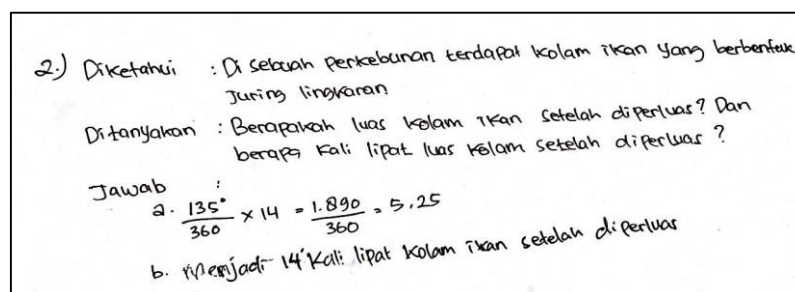 2.) Diketahui : Di sebuah perkebunan terdapat kolam ikan yang berbentuk
Juring lingkaran
Ditanyakan : Berapakah luas kolam ikan setelah diperluas? Dan
berapa kali lipat luas kolam setelah diperluas ?
Jawab :
a. 135°/360 × 14 = 1.890/360 = 5.25
b. Menjadi 14 kali lipat kolam ikan setelah diperluas